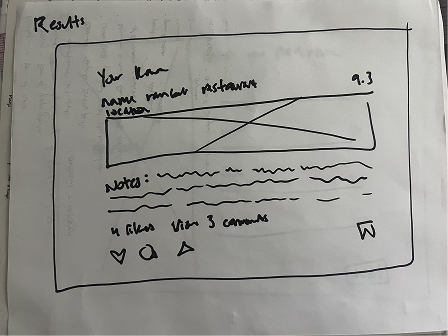 Results
Your
name ranked restaurant 9.3
location
Notes:
4 likes View 3 comments